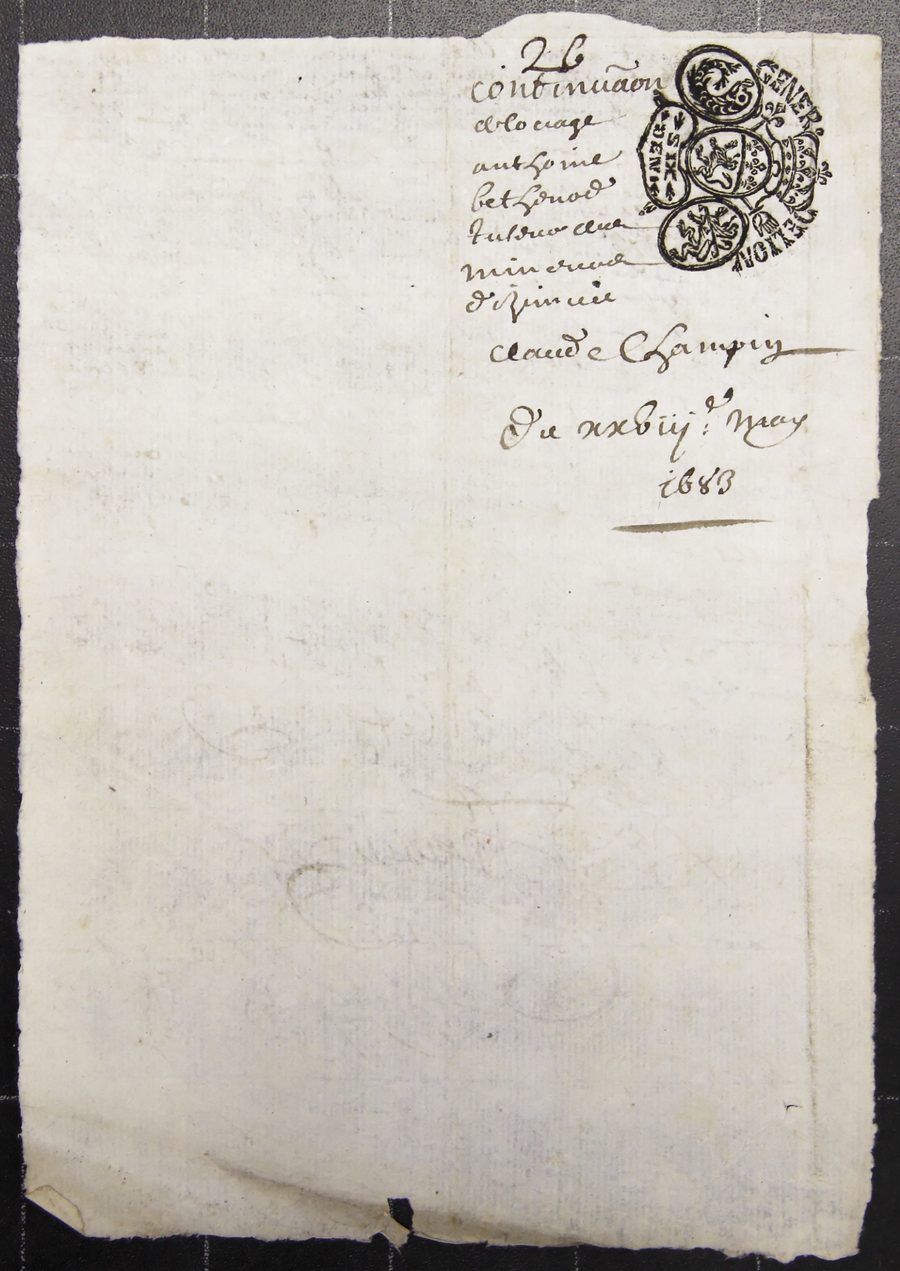 26
continuãon
de louage
anthoine
bethenod
tuteur des
mineurs
d'
claude Champin
Du xxbiij.e May
1683
GENER.
SIX
DENI
DE LYON